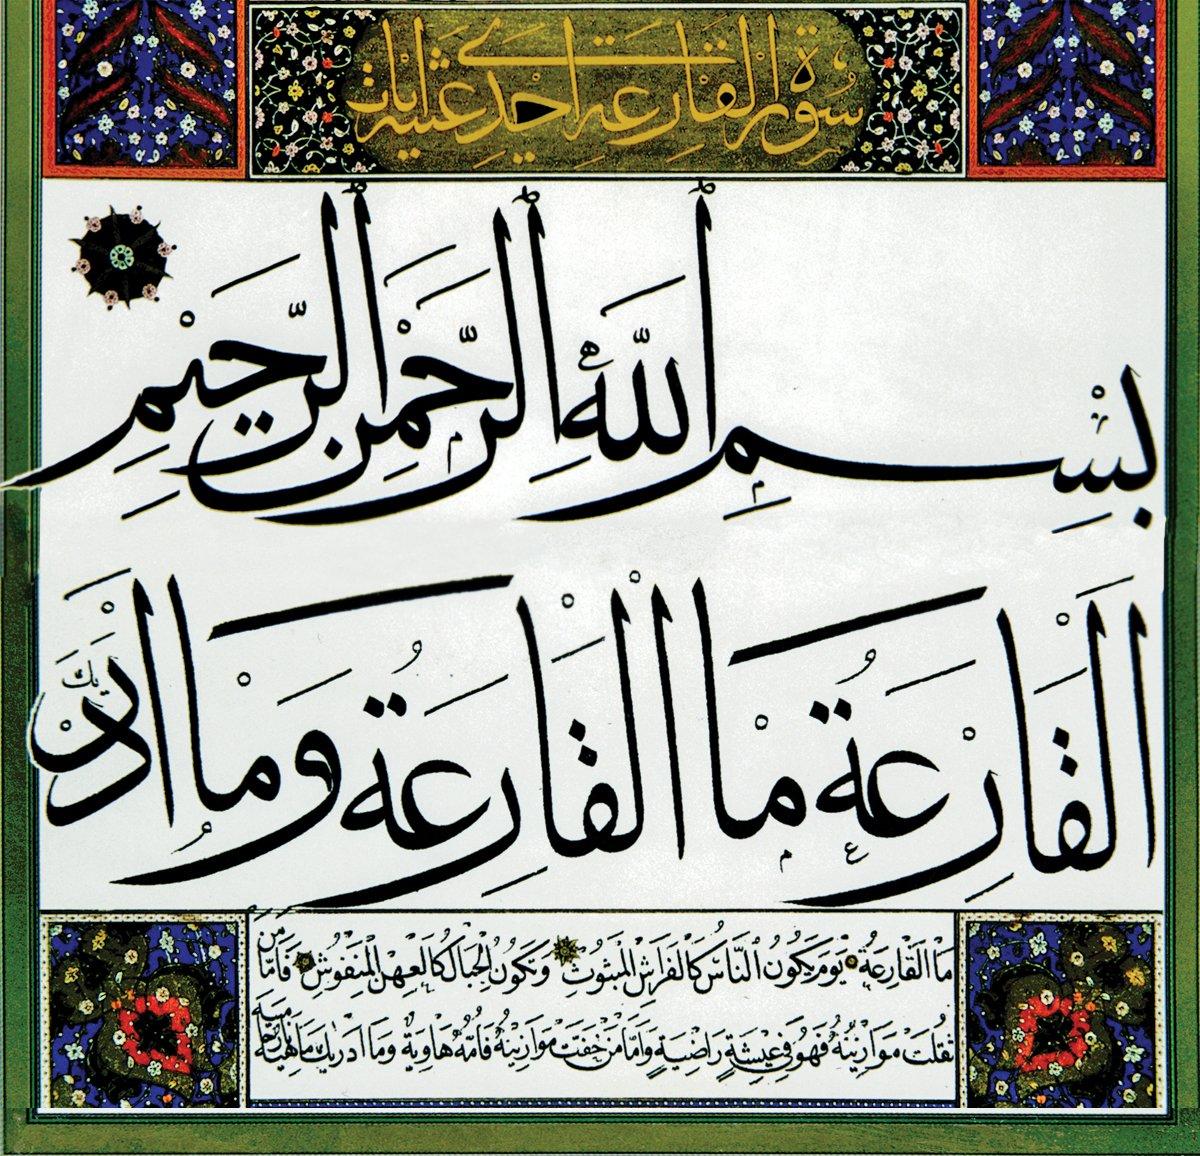 سورة القارعة احدى عشرة ايات
بِسْمِ اللّٰهِ الرَّحْمٰنِ الرَّحِيْمِ
اَلْقَارِعَةُ مَا الْقَارِعَةُ وَمَا اَدْرٰيكَ
مَا الْقَارِعَةُ يَوْمَ يَكُونُ النَّاسُ كَالْفَرَاشِ الْمَبْثُوثِ وَتَكُونُ الْجِبَالُ كَالْعِهْنِ الْمَنْفُوشِ فَاَمَّا مَنْ
ثَقُلَتْ مَوَازِينُهُ فَهُوَ فِي عِيشَةٍ رَاضِيَةٍ وَاَمَّا مَنْ خَفَّتْ مَوَازِينُهُ فَاُمُّهُ هَاوِيَةٌ وَمَا اَدْرٰيكَ مَاهِيَهْ نَارٌ حَامِيَةٌ